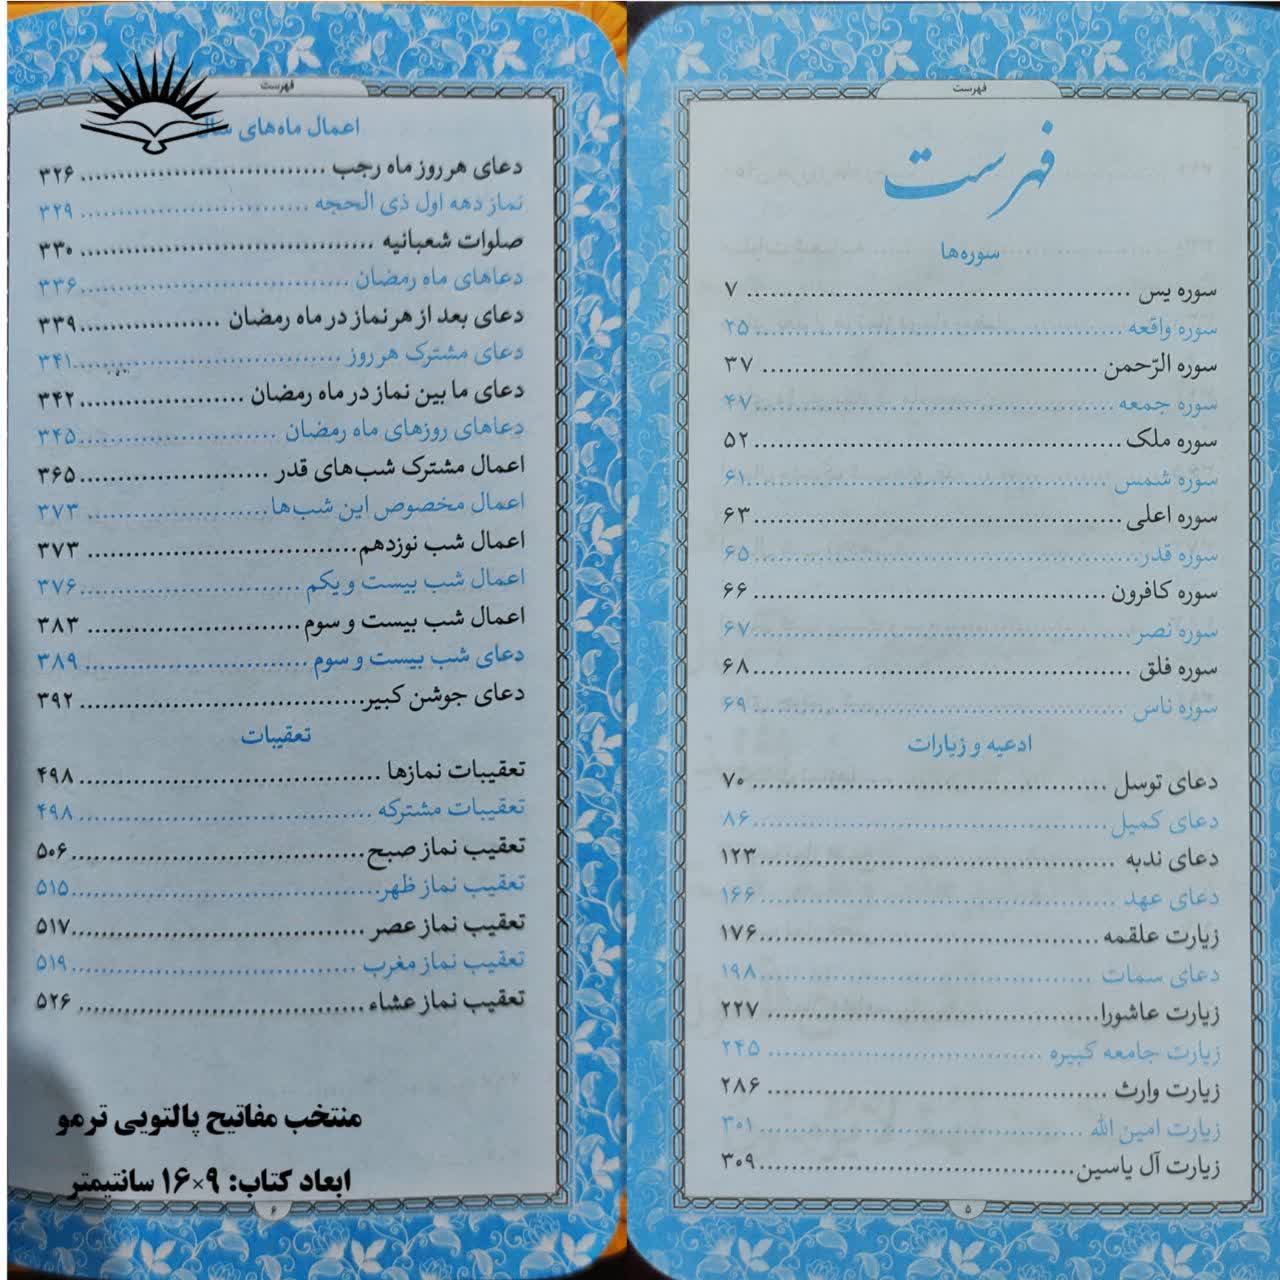 فهرست
فهرست
سوره‌ها
سوره یس ........ ۷
سوره واقعه ........ ۲۵
سوره الرّحمن ........ ۳۷
سوره جمعه ........ ۴۷
سوره ملک ........ ۵۲
سوره شمس ........ ۶۱
سوره اعلی ........ ۶۳
سوره قدر ........ ۶۵
سوره کافرون ........ ۶۶
سوره نصر ........ ۶۷
سوره فلق ........ ۶۸
سوره ناس ........ ۶۹
ادعیه و زیارات
دعای توسل ........ ۷۰
دعای کمیل ........ ۸۶
دعای ندبه ........ ۱۲۳
دعای عهد ........ ۱۶۶
زیارت علقمه ........ ۱۷۶
دعای سمات ........ ۱۹۸
زیارت عاشورا ........ ۲۲۷
زیارت جامعه کبیره ........ ۲۴۵
زیارت وارث ........ ۲۸۶
زیارت امین الله ........ ۳۰۱
زیارت آل یاسین ........ ۳۰۹
۵
فهرست
اعمال ماه‌های سال
دعای هر روز ماه رجب ........ ۳۲۶
نماز دهه اول ذی الحجه ........ ۳۲۹
صلوات شعبانیه ........ ۳۳۰
دعاهای ماه رمضان ........ ۳۳۶
دعای بعد از هر نماز در ماه رمضان ........ ۳۳۹
دعای مشترک هر روز ........ ۳۴۱
دعای ما بین نماز در ماه رمضان ........ ۳۴۲
دعاهای روزهای ماه رمضان ........ ۳۴۵
اعمال مشترک شب‌های قدر ........ ۳۶۵
اعمال مخصوص این شب‌ها ........ ۳۷۳
اعمال شب نوزدهم ........ ۳۷۳
اعمال شب بیست و یکم ........ ۳۷۶
اعمال شب بیست و سوم ........ ۳۸۳
دعای شب بیست و سوم ........ ۳۸۹
دعای جوشن کبیر ........ ۳۹۲
تعقیبات
تعقیبات نمازها ........ ۴۹۸
تعقیبات مشترکه ........ ۴۹۸
تعقیب نماز صبح ........ ۵۰۶
تعقیب نماز ظهر ........ ۵۱۵
تعقیب نماز عصر ........ ۵۱۷
تعقیب نماز مغرب ........ ۵۱۹
تعقیب نماز عشاء ........ ۵۲۶
منتخب مفاتیح پالتویی ترمو
ابعاد کتاب: ۹×۱۶ سانتیمتر
۶